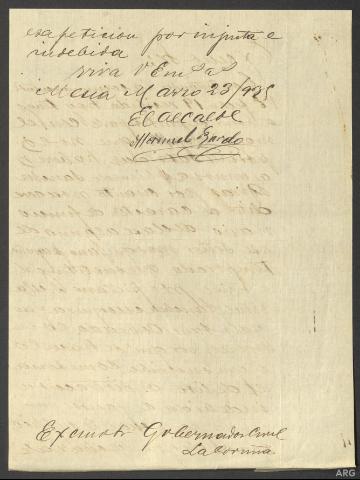 esa peticion por injusta e
indebida
Viva V Em⁠ᵃ aˢ
Marzo 23/935
El alcalde
Manuel Pardo
Exemotr Gobernador Civil
La Coruña
ARG